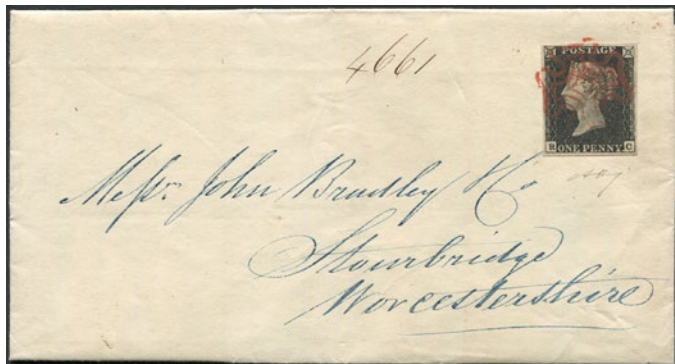 4661
POSTAGE
ONE PENNY
B C
Messrs. John Bradley & Co
Stourbridge
Worcestershire